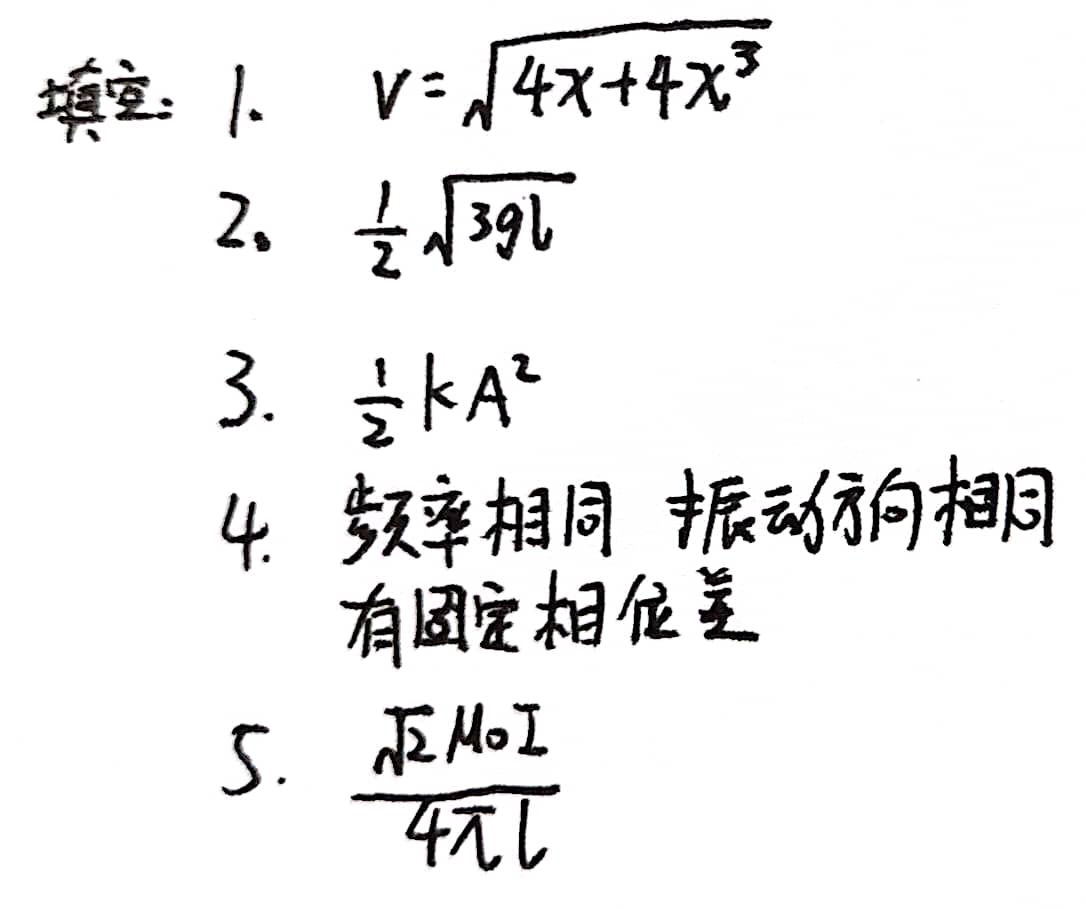 填空: 1. v=√(4x+4x³)
2. 1/2 √(3gl)
3. 1/2 kA²
4. 频率相同 振动方向相同
有固定相位差
5. √2 μ₀I / 4πl